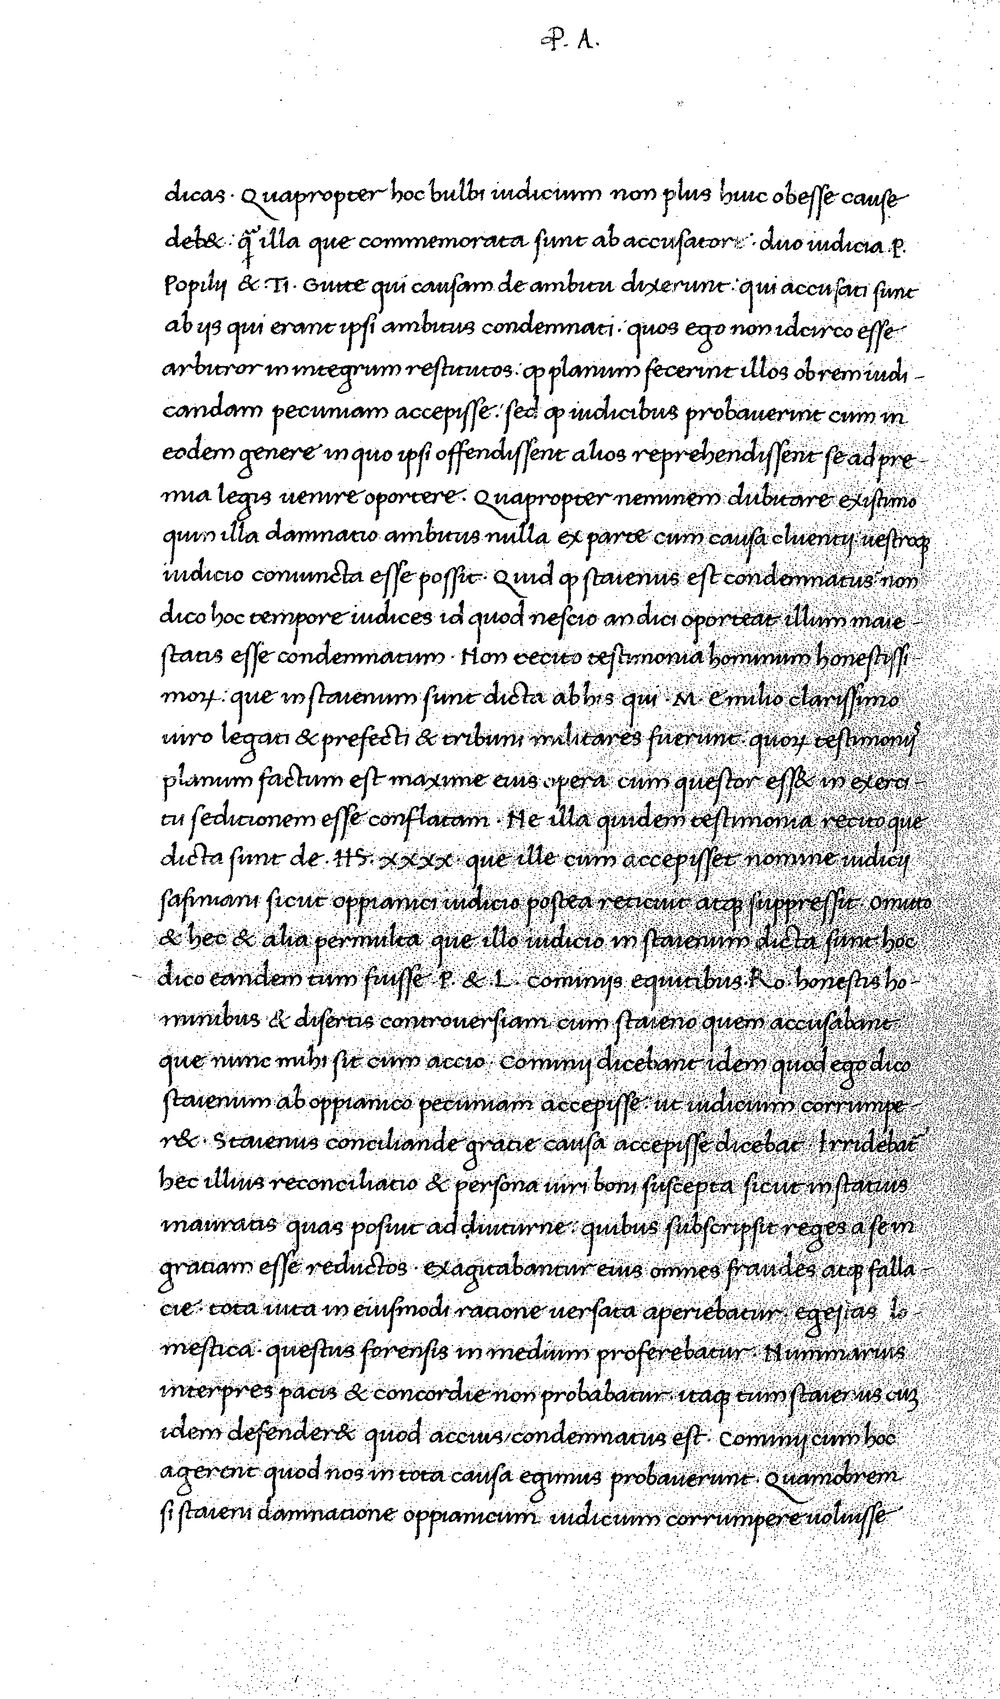 P. A.
dicas. Quapropter hoc bulbi iudicium non plus huic obesse cause
deb&: q̃ illa que commemorata sunt ab accusatore: duo iudicia P.
Popilij & Ti. Gutte qui causam de ambitu dixerunt: qui accusati sunt
ab ijs qui erant ipsi ambitus condemnati: quos ego non idcirco esse
arbitror in integrum restitutos: ꝙ planum fecerint illos ob rem iudi-
candam pecuniam accepisse: sed ꝙ iudicibus probauerint cum in
eodem genere in quo ipsi offendissent alios reprehendissent se ad pre-
mia legis uenire oportere. Quapropter neminem dubitare existimo
quin illa damnatio ambitus nulla ex parte cum causa cluentij uestroqꝫ
iudicio coniuncta esse possit. Quid ꝙ staienus est condemnatus non
dico hoc tempore iudices id quod nescio an dici oporteat illum maie-
statis esse condemnatum. Non recito testimonia hominum honestissi-
moꝝ: que in staienum sunt dicta ab his qui. M. Emilio clarissimo
uiro legati & prefecti & tribuni militares fuerunt. quoꝝ testimonijs
planum factum est maxime eius opera cum questor ess& in exerci-
tu seditionem esse conflatam. Ne illa quidem testimonia recito que
dicta sunt de. HS. xxxx. que ille cum accepisset nomine iudicij
safiniani sicut oppianici iudicio postea reticuit atqꝫ suppressit. omitto
& hec & alia permulta que illo iudicio in staienum dicta sunt hoc
dico eandem tum fuisse. P. & L. Cominijs equitibus. Ro. honestis ho-
minibus & disertis controuersiam cum staieno quem accusabant
que nunc mihi sit cum accio. Cominij dicebant idem quod ego dico
staienum ab oppianico pecuniam accepisse: ut iudicium corrumpe-
r&. Staienus conciliande gratie causa accepisse dicebat. Irridebat̃
hec illius reconciliatio & persona uiri boni suscepta sicut in statuis
inauratis quas posuit ad diuturne: quibus subscripsit reges a se in
gratiam esse reductos. exagitabantur eius omnes fraudes atqꝫ falla-
cie. tota uita in eiusmodi ratione uersata aperiebatur. egestas do-
mestica. questus forensis in medium proferebatur. Nummarius
interpres pacis & concordie non probabatur. itaqꝫ tum staienus cuꝫ
idem defender& quod accius/condemnatus est. Cominij cum hoc
agerent quod nos in tota causa egimus probauerunt. Quamobrem
si staieni damnatione oppianicum iudicium corrumpere uoluisse